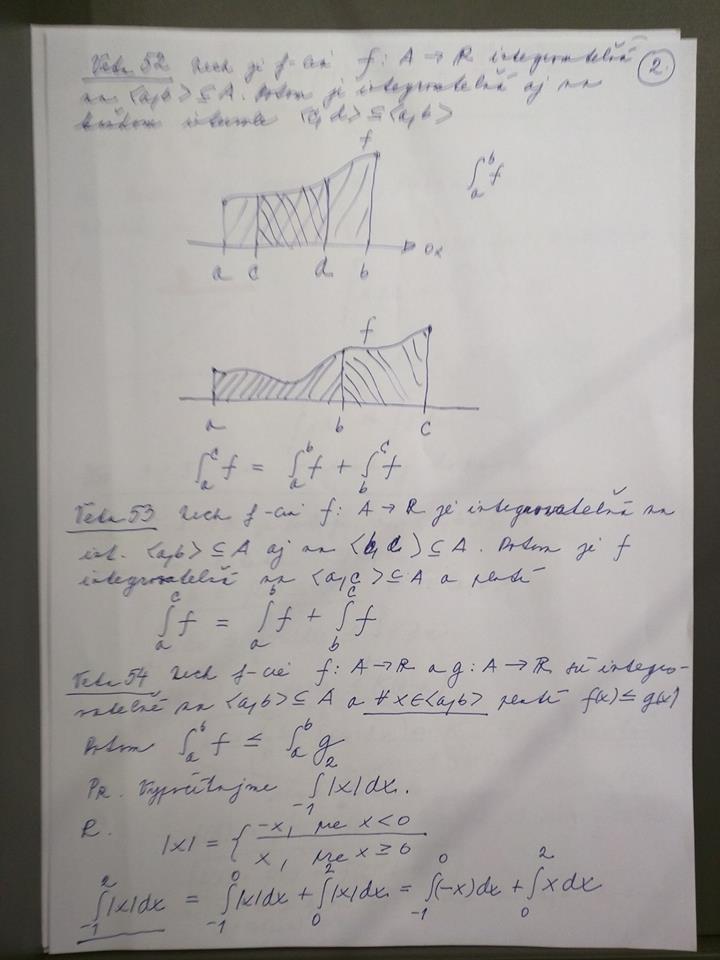 Veta 52 Nech je f-cia f: A → R integrovateľná
2
na <a,b> ⊆ A. Potom je integrovateľná aj na
intervale <c,d> ⊆ <a,b>
f
∫_a^b f
a c d b 0x
f
a b c
∫_a^c f = ∫_a^b f + ∫_b^c f
Veta 53 Nech f-cia f: A → R je integrovateľná na
int. <a,b> ⊆ A aj na <b,c> ⊆ A. Potom je f
integrovateľná na <a,c> ⊆ A a platí
∫_a^c f = ∫_a^b f + ∫_b^c f
Veta 54 Nech f-cie f: A → R a g: A → R sú integro-
vateľné na <a,b> ⊆ A a ∀x∈<a,b> platí f(x) ≤ g(x)
Potom ∫_a^b f ≤ ∫_a^b g
Pr. Vypočítajme ∫_{-1}^2 |x| dx.
R. |x| = { -x, pre x < 0
x, pre x ≥ 0
∫_{-1}^2 |x| dx = ∫_{-1}^0 |x| dx + ∫_0^2 |x| dx = ∫_{-1}^0 (-x) dx + ∫_0^2 x dx